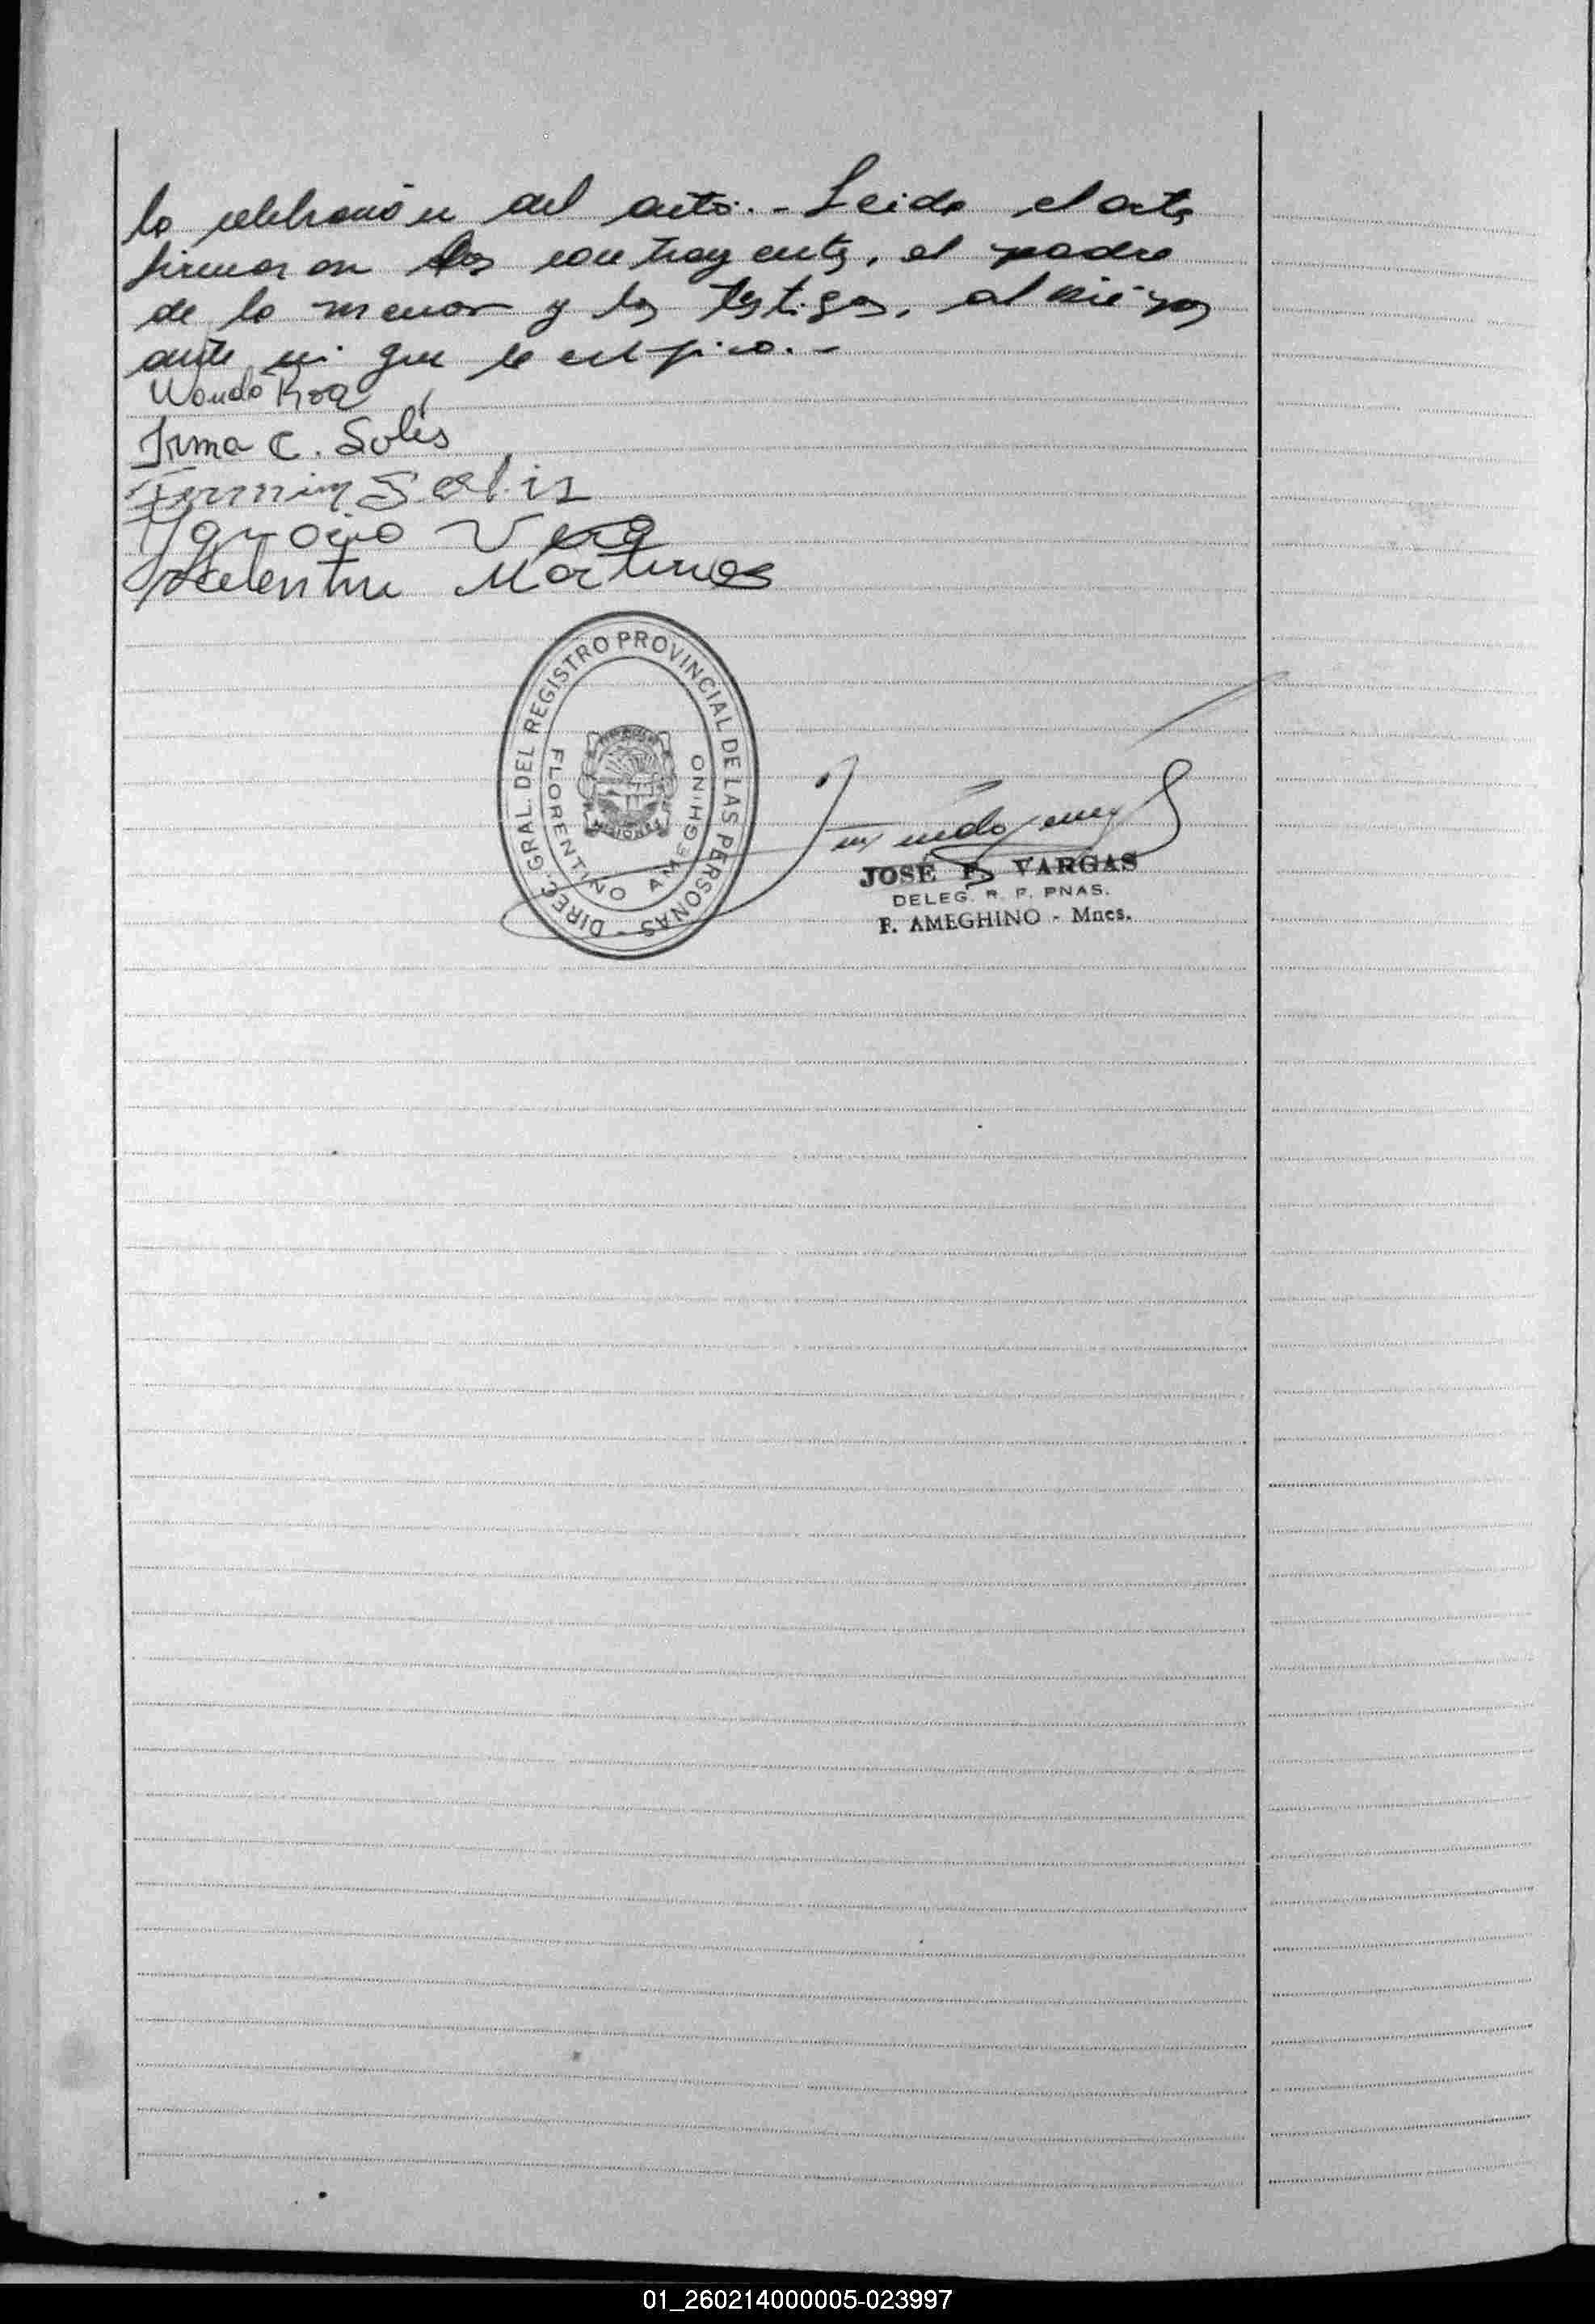 la celebración del acto. - Leida el acta
firmaron los contrayentes, el padre
de la menor y los testigos,
ante mi que le certifico. -
Wando Roa
Irma C. Solís
Fermin Solis
Ygnacio Vera
Valentin Martines
DIREC. GRAL. DEL REGISTRO PROVINCIAL DE LAS PERSONAS -
FLORENTINO AMEGHINO
MISIONES
JOSÉ F. VARGAS
DELEG. R. P. PNAS.
F. AMEGHINO - Mnes.
01_260214000005-023997